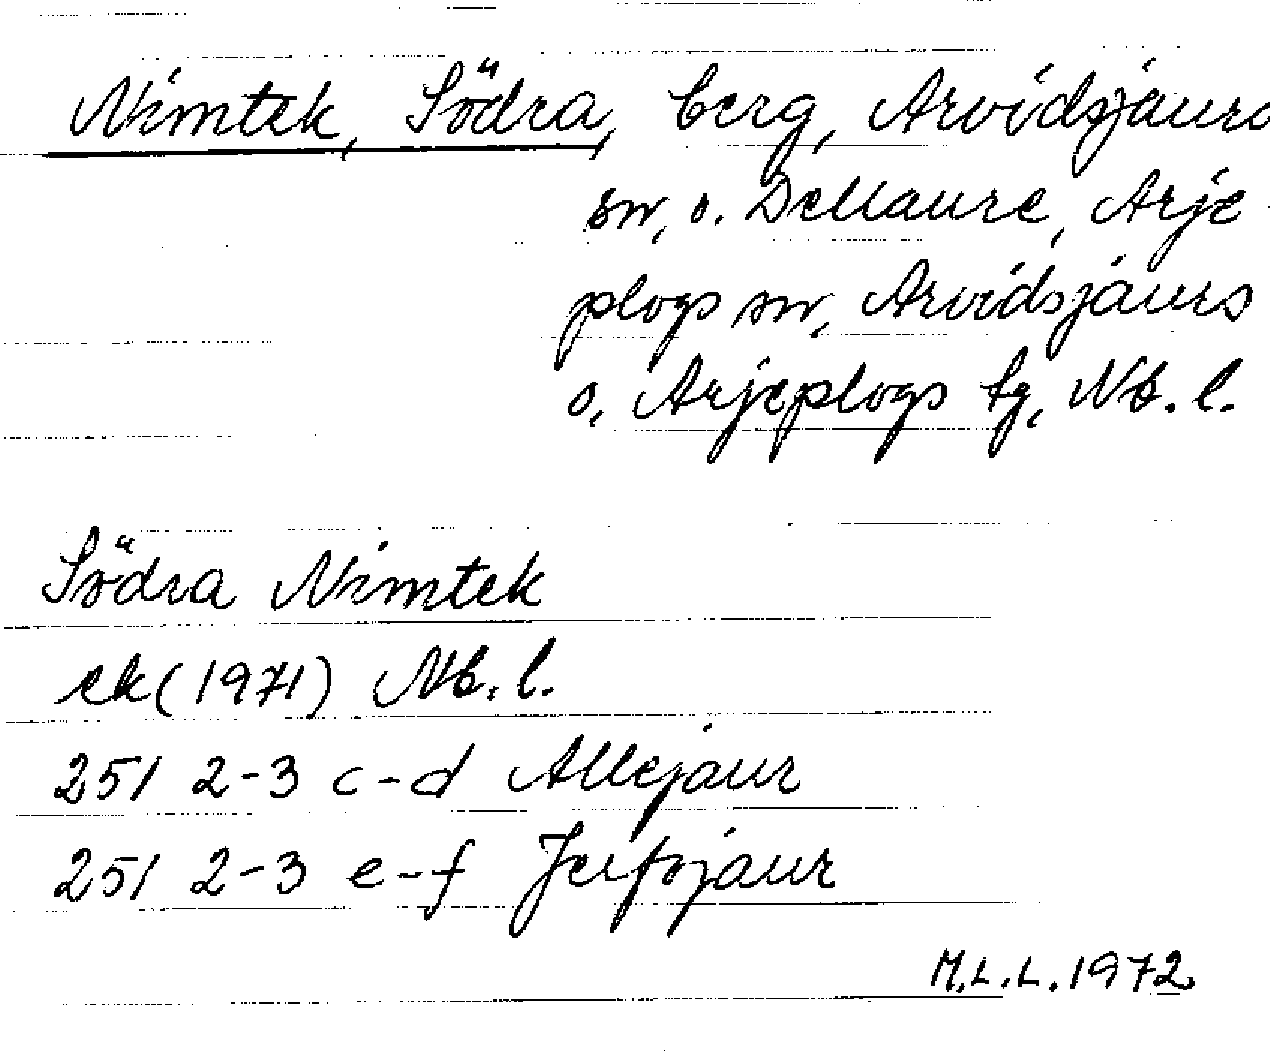 Nimtek, Södra, berg, Arvidsjaurs
sn, o. Dellaure, Arje-
plogs sn, Arvidsjaurs
o. Arjeplogs tg, Nb. l.
Södra Nimtek
ek (1971) Nb. l.
251 2-3 c-d Allejaur
251 2-3 e-f Jerfojaur
M.L.L. 1972